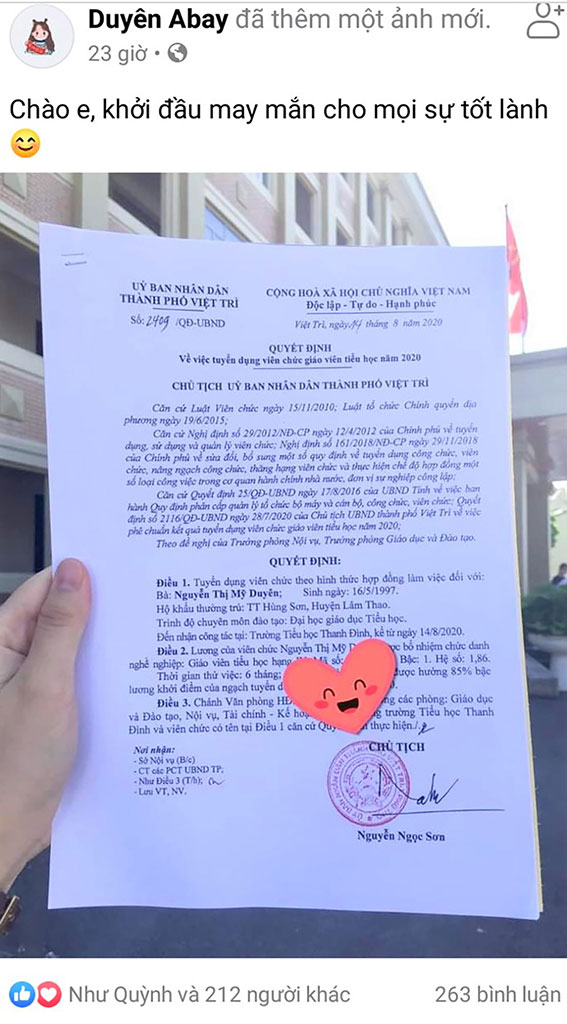 Duyên Abay đã thêm một ảnh mới.
23 giờ
Chào e, khởi đầu may mắn cho mọi sự tốt lành
UỶ BAN NHÂN DÂN
THÀNH PHỐ VIỆT TRÌ
Số: 2409 /QĐ-UBND
CỘNG HOÀ XÃ HỘI CHỦ NGHĨA VIỆT NAM
Độc lập - Tự do - Hạnh phúc
Việt Trì, ngày 14 tháng 8 năm 2020
QUYẾT ĐỊNH
Về việc tuyển dụng viên chức giáo viên tiểu học năm 2020
CHỦ TỊCH UỶ BAN NHÂN DÂN THÀNH PHỐ VIỆT TRÌ
Căn cứ Luật Viên chức ngày 15/11/2010; Luật tổ chức Chính quyền địa
phương ngày 19/6/2015;
Căn cứ Nghị định số 29/2012/NĐ-CP ngày 12/4/2012 của Chính phủ về tuyển
dụng, sử dụng và quản lý viên chức; Nghị định số 161/2018/NĐ-CP ngày 29/11/2018
của Chính phủ về sửa đổi, bổ sung một số quy định về tuyển dụng công chức, viên
chức, nâng ngạch công chức, thăng hạng viên chức và thực hiện chế độ hợp đồng một
số loại công việc trong cơ quan hành chính nhà nước, đơn vị sự nghiệp công lập;
Căn cứ Quyết định 25/QĐ-UBND ngày 17/8/2016 của UBND Tỉnh về việc ban
hành Quy định phân cấp quản lý tổ chức bộ máy và cán bộ, công chức, viên chức; Quyết
định số 2116/QĐ-UBND ngày 28/7/2020 của Chủ tịch UBND thành phố Việt Trì về việc
phê chuẩn kết quả tuyển dụng viên chức giáo viên tiểu học năm 2020;
Theo đề nghị của Trưởng phòng Nội vụ, Trưởng phòng Giáo dục và Đào tạo.
QUYẾT ĐỊNH:
Điều 1. Tuyển dụng viên chức theo hình thức hợp đồng làm việc đối với:
Bà: Nguyễn Thị Mỹ Duyên; Sinh ngày: 16/5/1997.
Hộ khẩu thường trú: TT Hùng Sơn, Huyện Lâm Thao.
Trình độ chuyên môn đào tạo: Đại học giáo dục Tiểu học.
Đến nhận công tác tại: Trường Tiểu học Thanh Đình, kể từ ngày 14/8/2020.
Điều 2. Lương của viên chức Nguyễn Thị Mỹ D bổ nhiệm chức danh
nghề nghiệp: Giáo viên tiểu học hạng số: Bậc: 1. Hệ số: 1,86.
Thời gian thử việc: 6 tháng; được hưởng 85% bậc
lương khởi điểm của ngạch tuyển
Điều 3. Chánh Văn phòng HĐ các phòng: Giáo dục
và Đào tạo, Nội vụ, Tài chính - Kế trường Tiểu học Thanh
Đình và viên chức có tên tại Điều 1 căn cứ Quy thực hiện./.
Nơi nhận:
- Sở Nội vụ (B/c)
- CT các PCT UBND TP;
- Như Điều 3 (T/h);
- Lưu VT, NV.
CHỦ TỊCH
Nguyễn Ngọc Sơn
Như Quỳnh và 212 người khác
263 bình luận